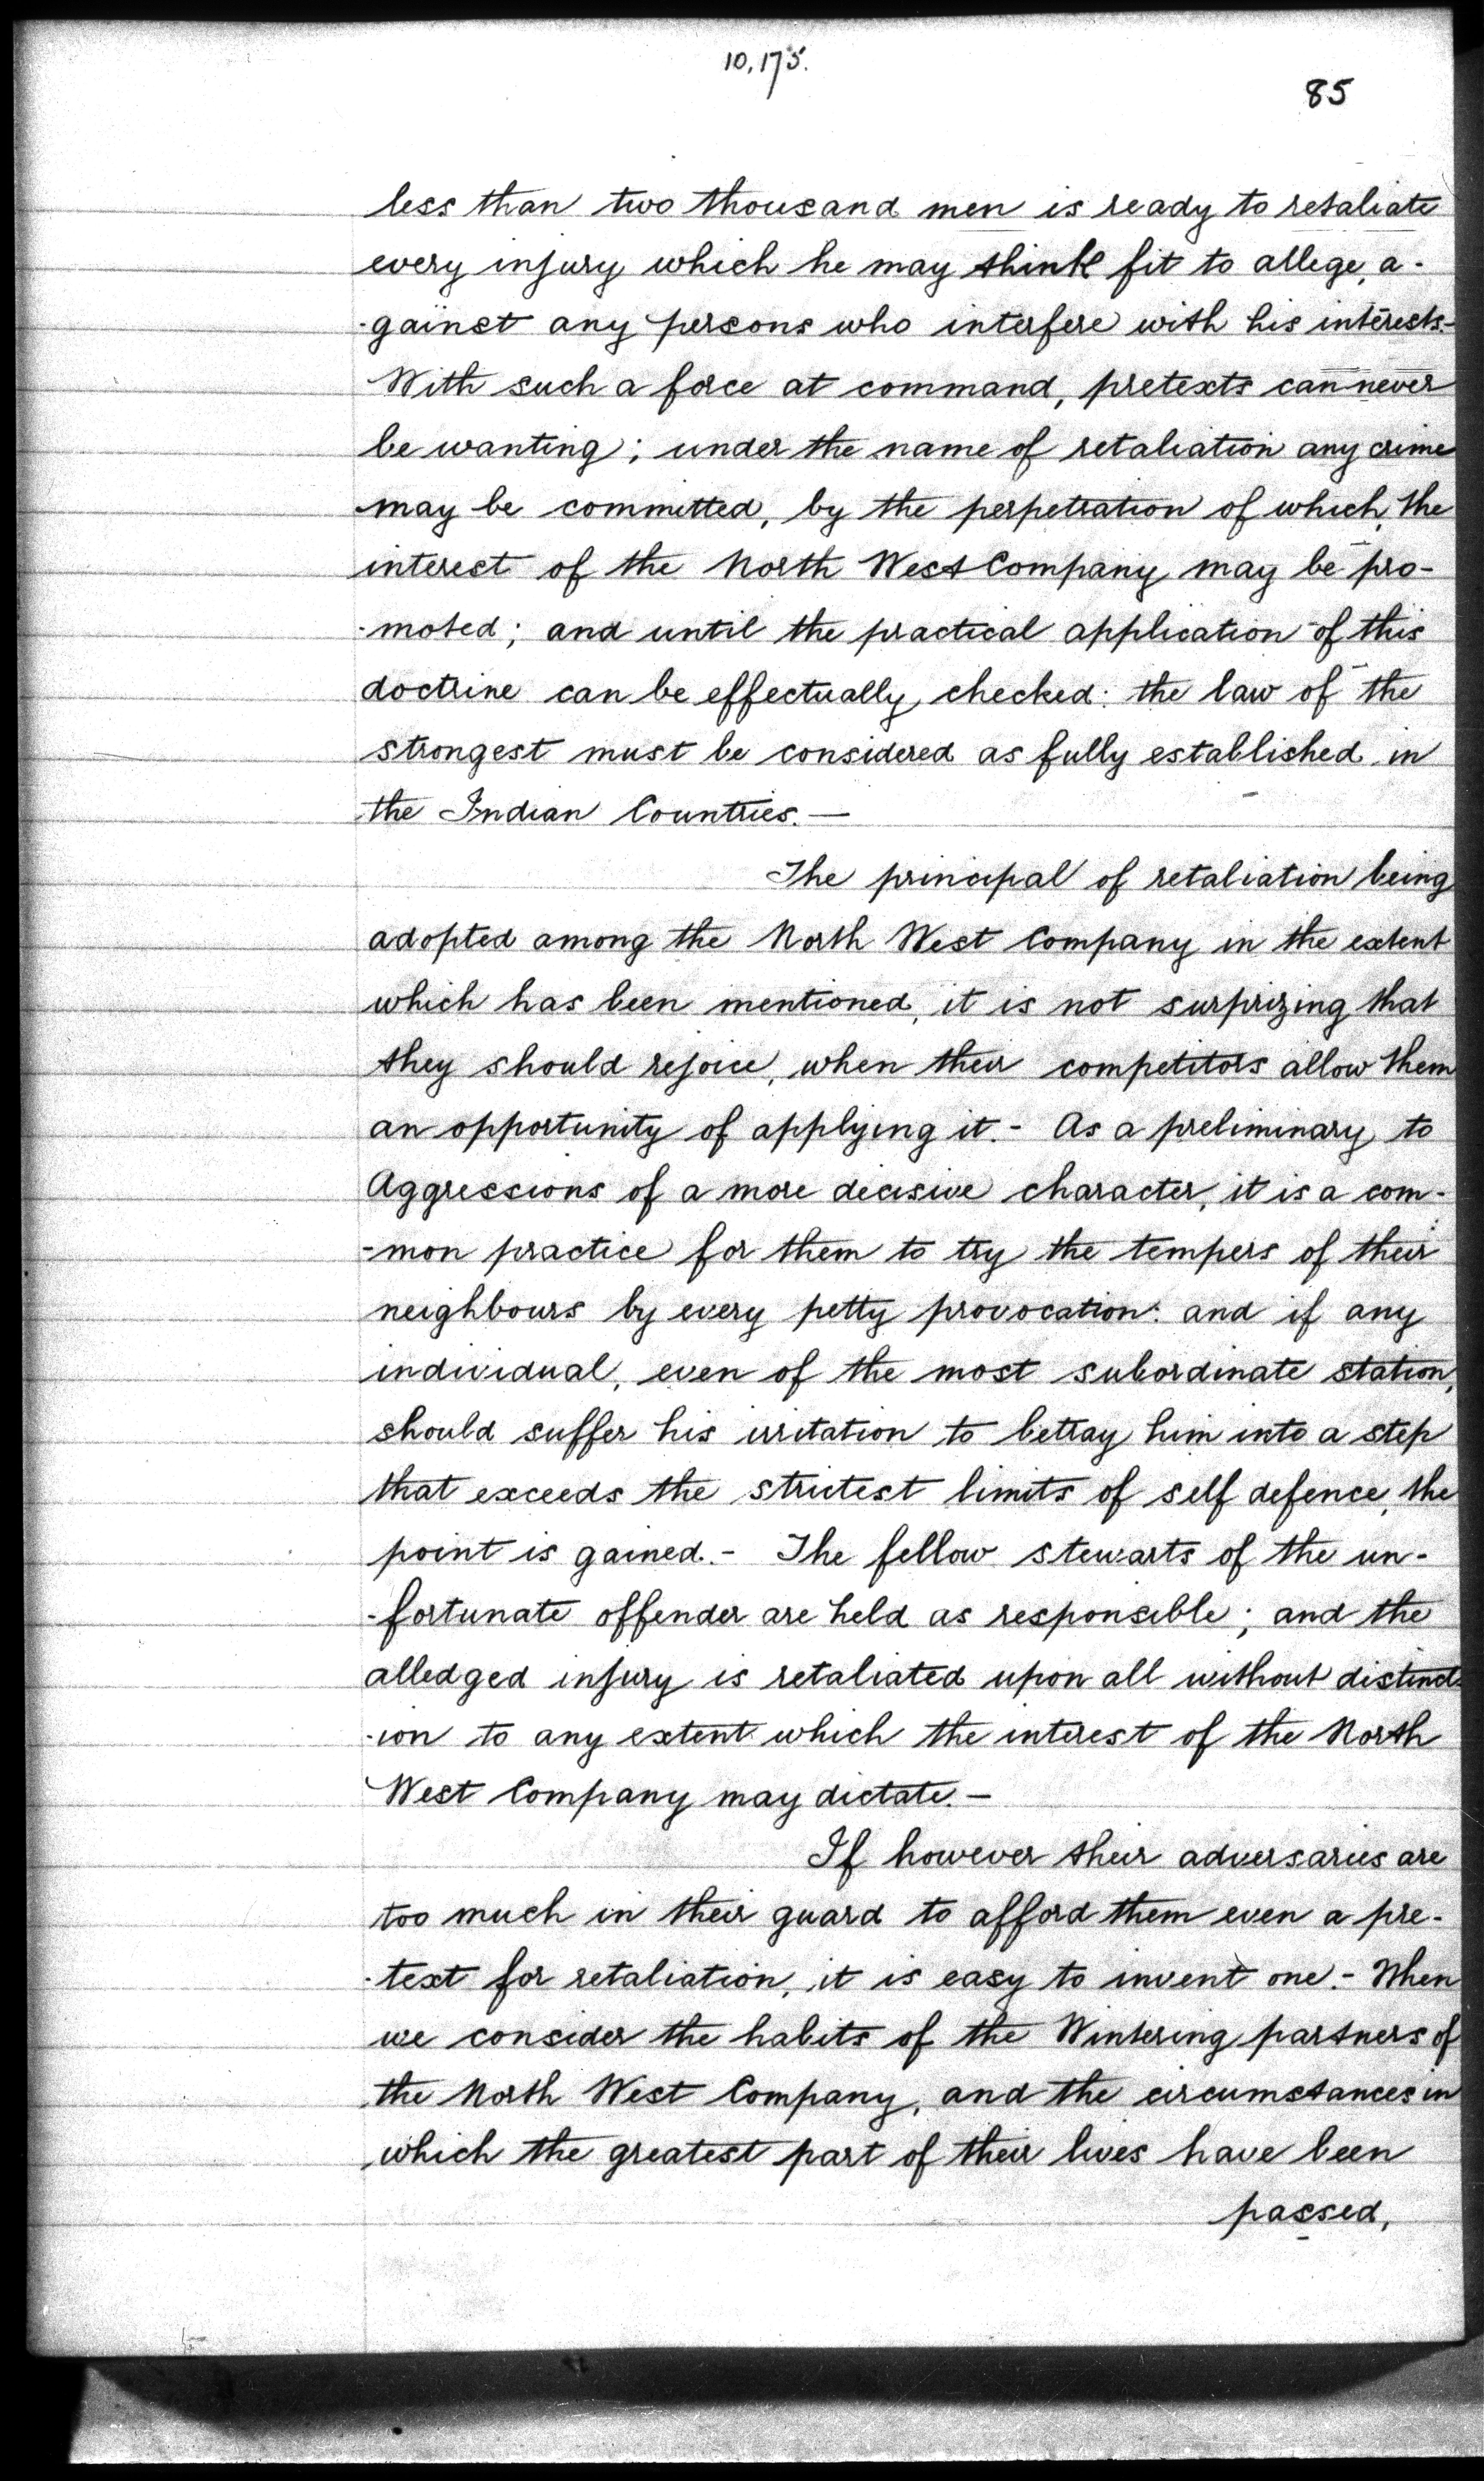 10,175.
85
less than two thousand men is ready to retaliate
every injury which he may think fit to allege, a-
-gainst any persons who interfere with his interests.-
With such a force at command, pretexts can never
be wanting; under the name of retaliation any crime
may be committed, by the perpetration of which, the
interest of the North West Company may be pro-
-moted; and until the practical application of this
doctrine can be effectually checked: the law of the
strongest must be considered as fully established in
the Indian Countries.—
The principal of retaliation being
adopted among the North West Company in the extent
which has been mentioned, it is not surprizing that
they should rejoice, when their competitors allow them
an opportunity of applying it.- As a preliminary to
Aggressions of a more decisive character, it is a com-
-mon practice for them to try the tempers of their
neighbours by every petty provocation: and if any
individual, even of the most subordinate station,
should suffer his irritation to betray him into a step
that exceeds the strictest limits of self defence, the
point is gained.- The fellow stewarts of the un-
-fortunate offender are held as responsible; and the
alledged injury is retaliated upon all without distinct-
-ion to any extent which the interest of the North
West Company may dictate.—
If however their adversaries are
too much in their guard to afford them even a pre-
-text for retaliation, it is easy to invent one.- When
we consider the habits of the Wintering partners of
the North West Company, and the circumstances in
which the greatest part of their lives have been
passed,